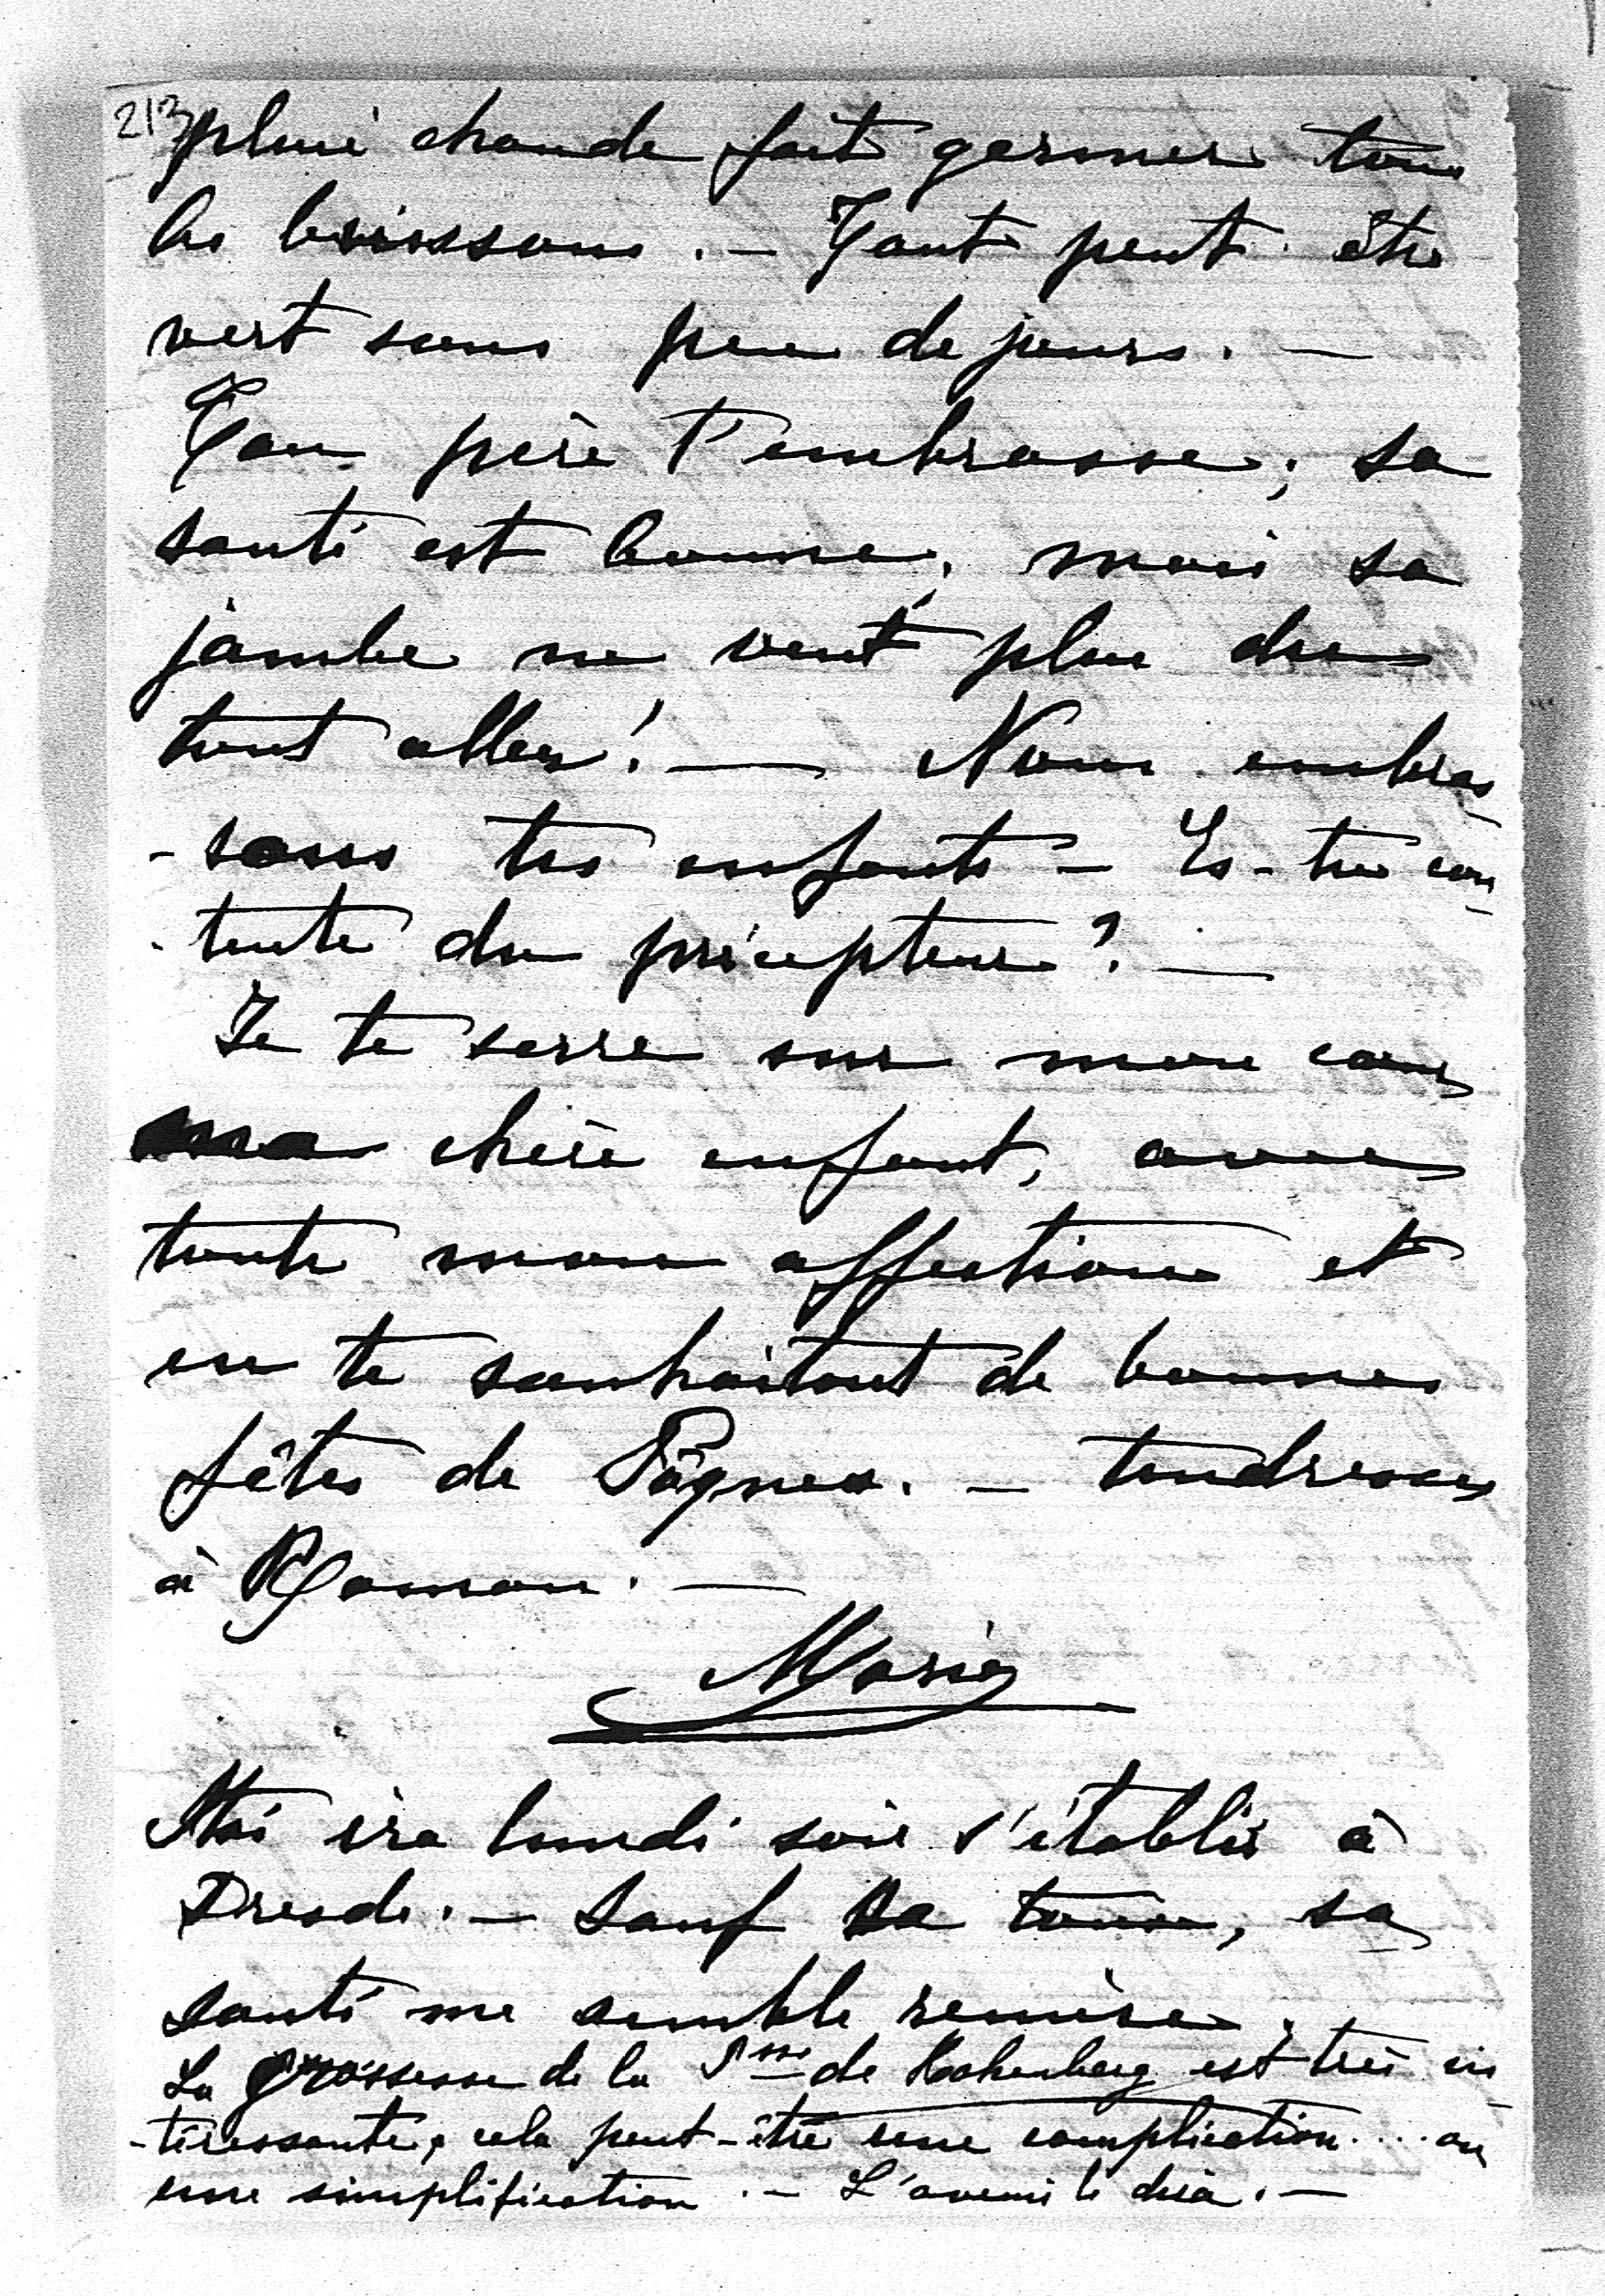 213
pluie chaude fait germer tous
les buissons. — Tout peut être
vert sous peu de jours. —
Ton père t'embrasse; sa
santé est bonne, mais sa
jambe ne veut plus du
tout aller! — Nous embras
-sons tes enfants — Es-tu con
-tente du précepteur? —
Je te serre sur mon cœur
ma chère enfant, avec
toute mon affection et
en te souhaitant de bonnes
fêtes de Pâques. — tendresses
à Roman. —
Marie
ira lundi soir s'établir à
Dresde. — Sauf sa toux, sa
santé me semble remise.
La grossesse de la Psse de Hohenberg est très in
-téressante, cela peut-être une complication.... ou
une simplification. — L'avenir le dira. —